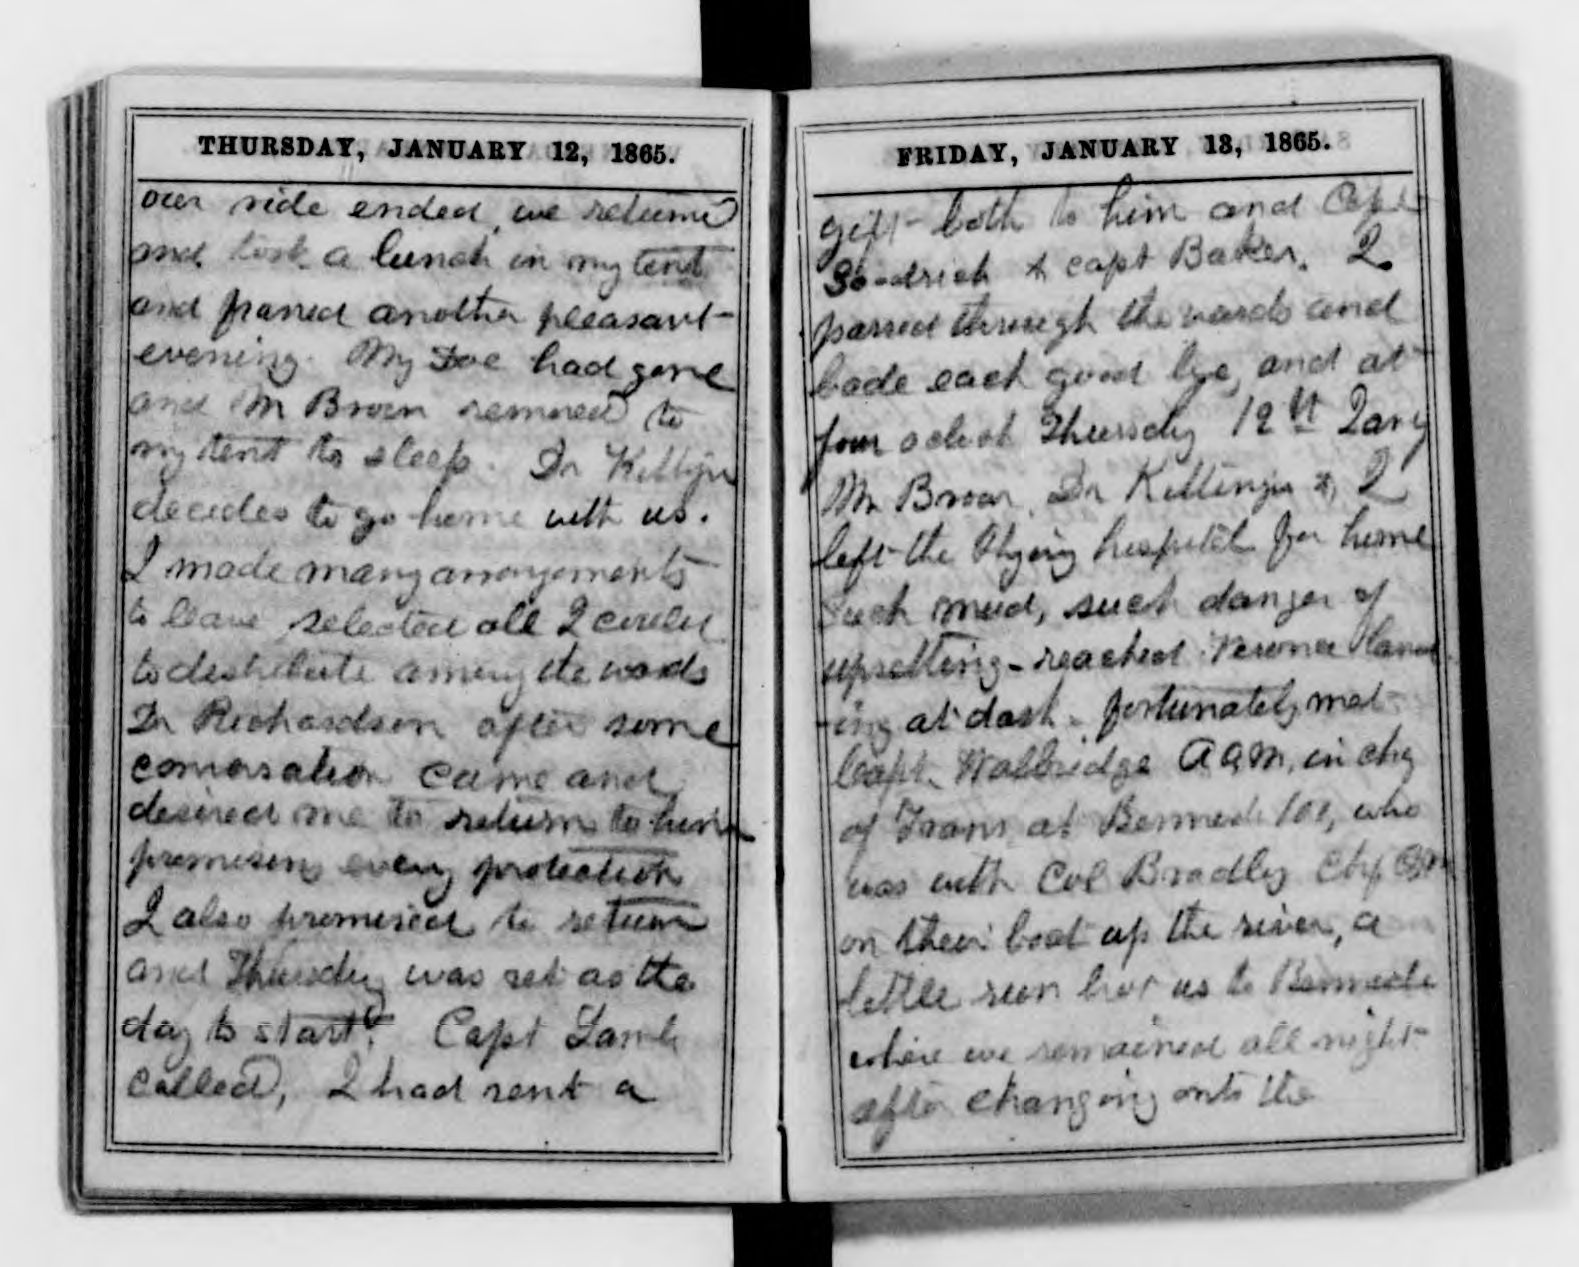 THURSDAY, JANUARY 12, 1865.
our ride ended, we returned
and took a lunch in my tent
and passed another pleasant
evening. My had gone
and Mr Brown removed to
my tent to sleep. Dr
decides to go home with us.
I made many arrangements
to leave selected all I could
to distribute among the wards
Dr Richardson after some
conversation came and
desired me to return to him
promising every protection
I also promised to return
and Thursday was set as the
day to start. Capt Lamb
called, I had sent a
FRIDAY, JANUARY 13, 1865.
gift both to him and Capt
Goodrich & Capt Baker. I
passed through the wards and
bade each good bye, and at
four oclock Thursday 12th Jany
Mr Brown, Dr Kittinger & I
left the Flying hospital for home
Such mud, such danger of
upsetting - reached land
-ing at dark. fortunately met
Capt. Walbridge A Q M, in chg
of Trans at Bermuda 100, who
was with Col Bradley Chf Q M
on their boat up the river, a
little run bro't us to Bermuda
where we remained all night
after changing onto the